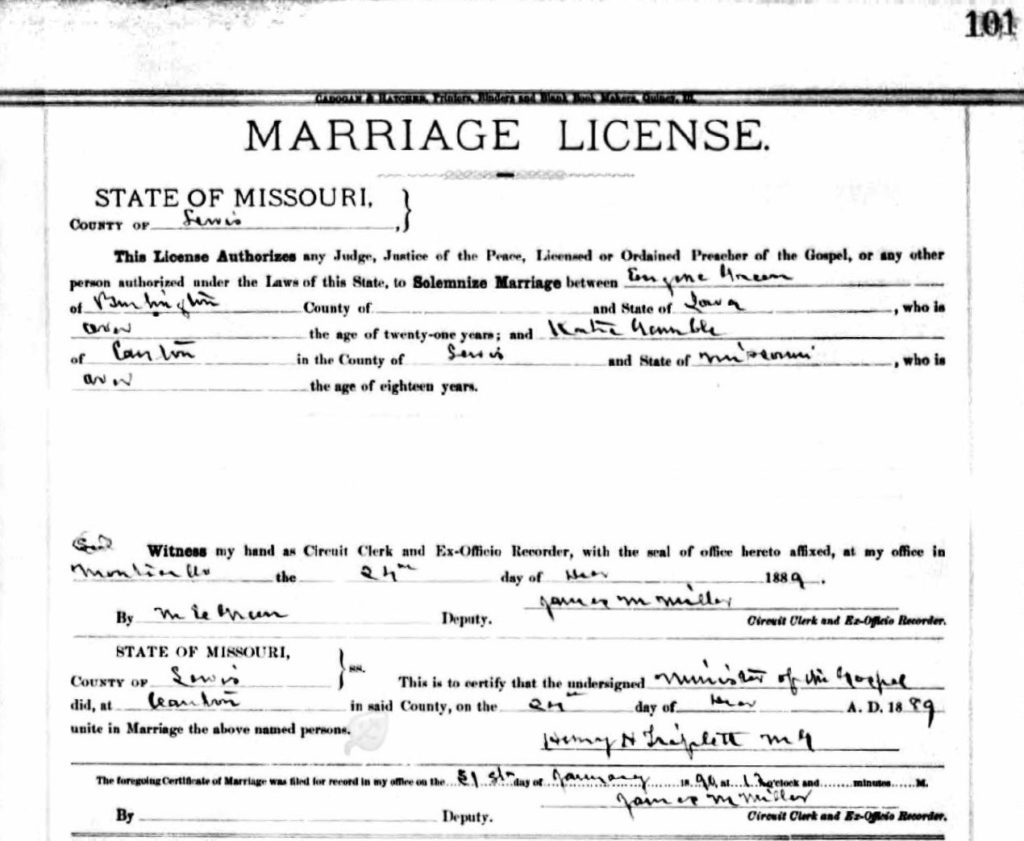 101
CADOGAN & HATCHER, Printers, Binders and Blank Book Makers, Quincy, Ill.
MARRIAGE LICENSE.
STATE OF MISSOURI,
COUNTY OF Lewis ,
This License Authorizes any Judge, Justice of the Peace, Licensed or Ordained Preacher of the Gospel, or any other
person authorized under the Laws of this State, to Solemnize Marriage between Eugene Green
of Burlington County of and State of Iowa , who is
over the age of twenty-one years; and Katie Gamble
of Canton in the County of Lewis and State of Missouri , who is
over the age of eighteen years.
Seal Witness my hand as Circuit Clerk and Ex-Officio Recorder, with the seal of office hereto affixed, at my office in
Monticello the day of 1889.
James M Miller
By Green Deputy. Circuit Clerk and Ex-Officio Recorder.
STATE OF MISSOURI,
COUNTY OF Lewis ss. This is to certify that the undersigned Minister of the Gospel
did, at Canton in said County, on the day of A. D. 1889
unite in Marriage the above named persons.
Henry H Triplett M G
The foregoing Certificate of Marriage was filed for record in my office on the 31st day of January 1890, at o'clock and minutes M.
James M Miller
By Deputy. Circuit Clerk and Ex-Officio Recorder.